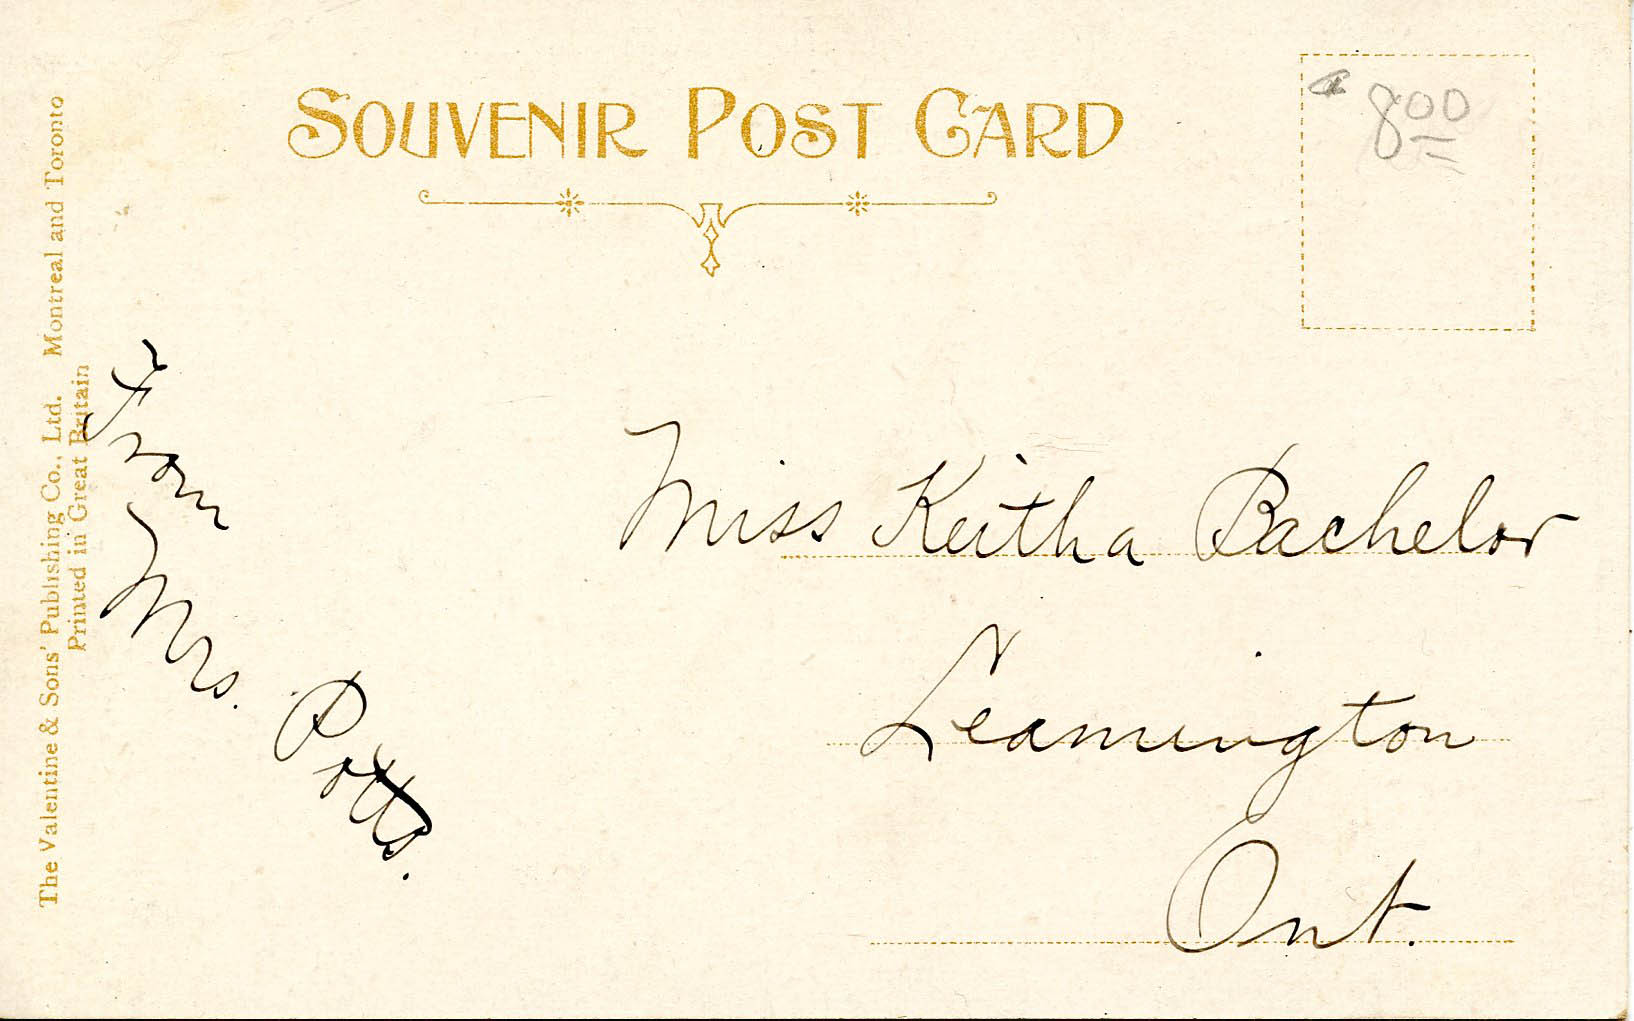 SOUVENIR POST CARD
800
The Valentine & Sons' Publishing Co., Ltd. Montreal and Toronto
Printed in Great Britain
From
Mrs. Potts.
Miss Keitha Bachelor
Leamington
Ont.